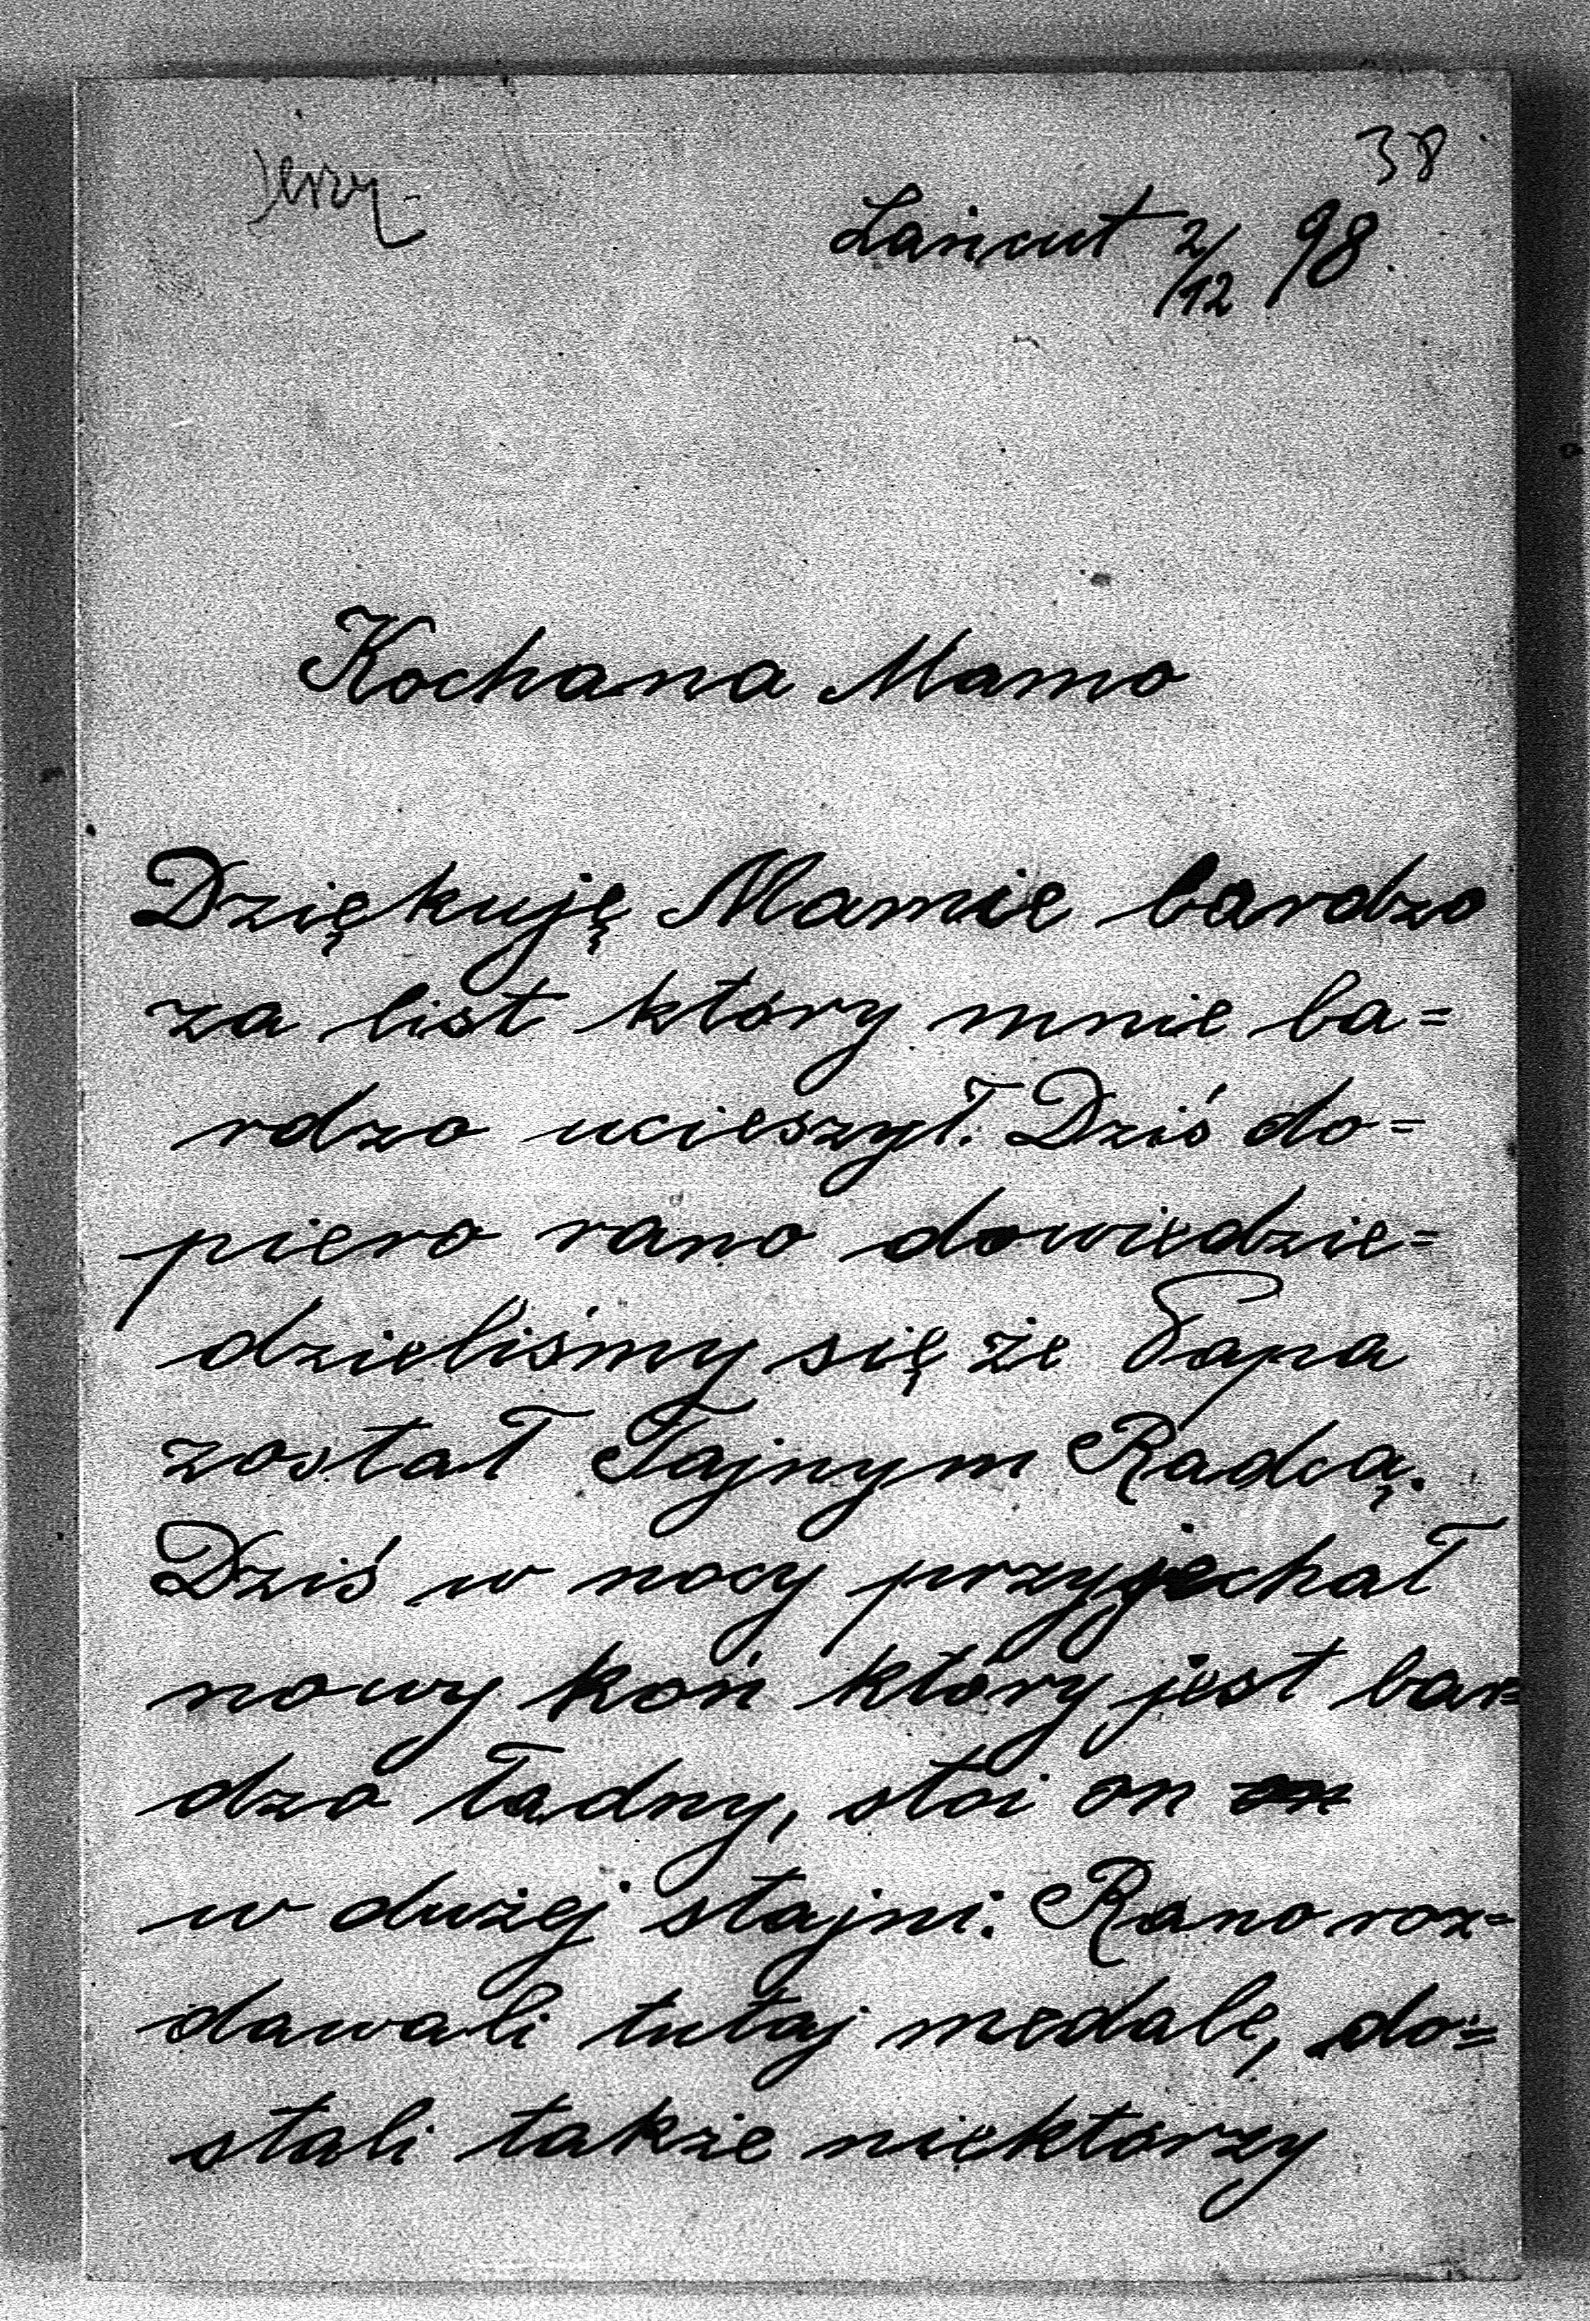 Jerzy
38
Łańcut 2/12 98.
Kochana Mamo
Dziękuję Mamie bardzo
za list który mnie ba=
rdzo ucieszył. Dziś do=
piero rano dowiedzie=
dzieliśmy się że Papa
został Tajnym Radcą.
Dziś w nocy przyjechał
nowy koń który jest bar=
dzo ładny, stoi on on
w dużej stajni. Rano roz=
dawali tutaj medale, do=
stali takze niektorzy